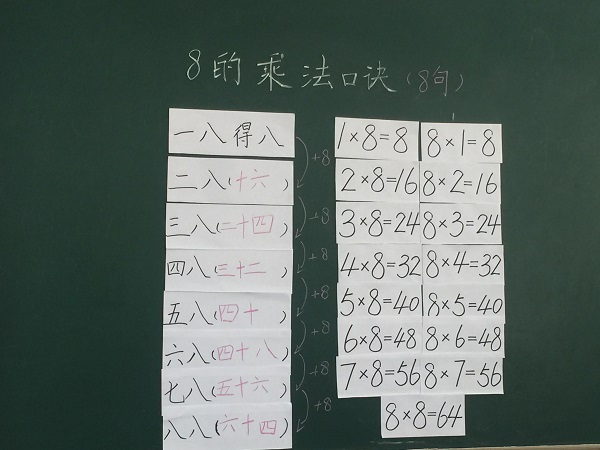 8的乘法口诀(8句)
一八得八
二八(十六)
三八(二十四)
四八(三十二)
五八(四十)
六八(四十八)
七八(五十六)
八八(六十四)
+8
+8
+8
+8
+8
+8
+8
1×8=8 8×1=8
2×8=16 8×2=16
3×8=24 8×3=24
4×8=32 8×4=32
5×8=40 8×5=40
6×8=48 8×6=48
7×8=56 8×7=56
8×8=64